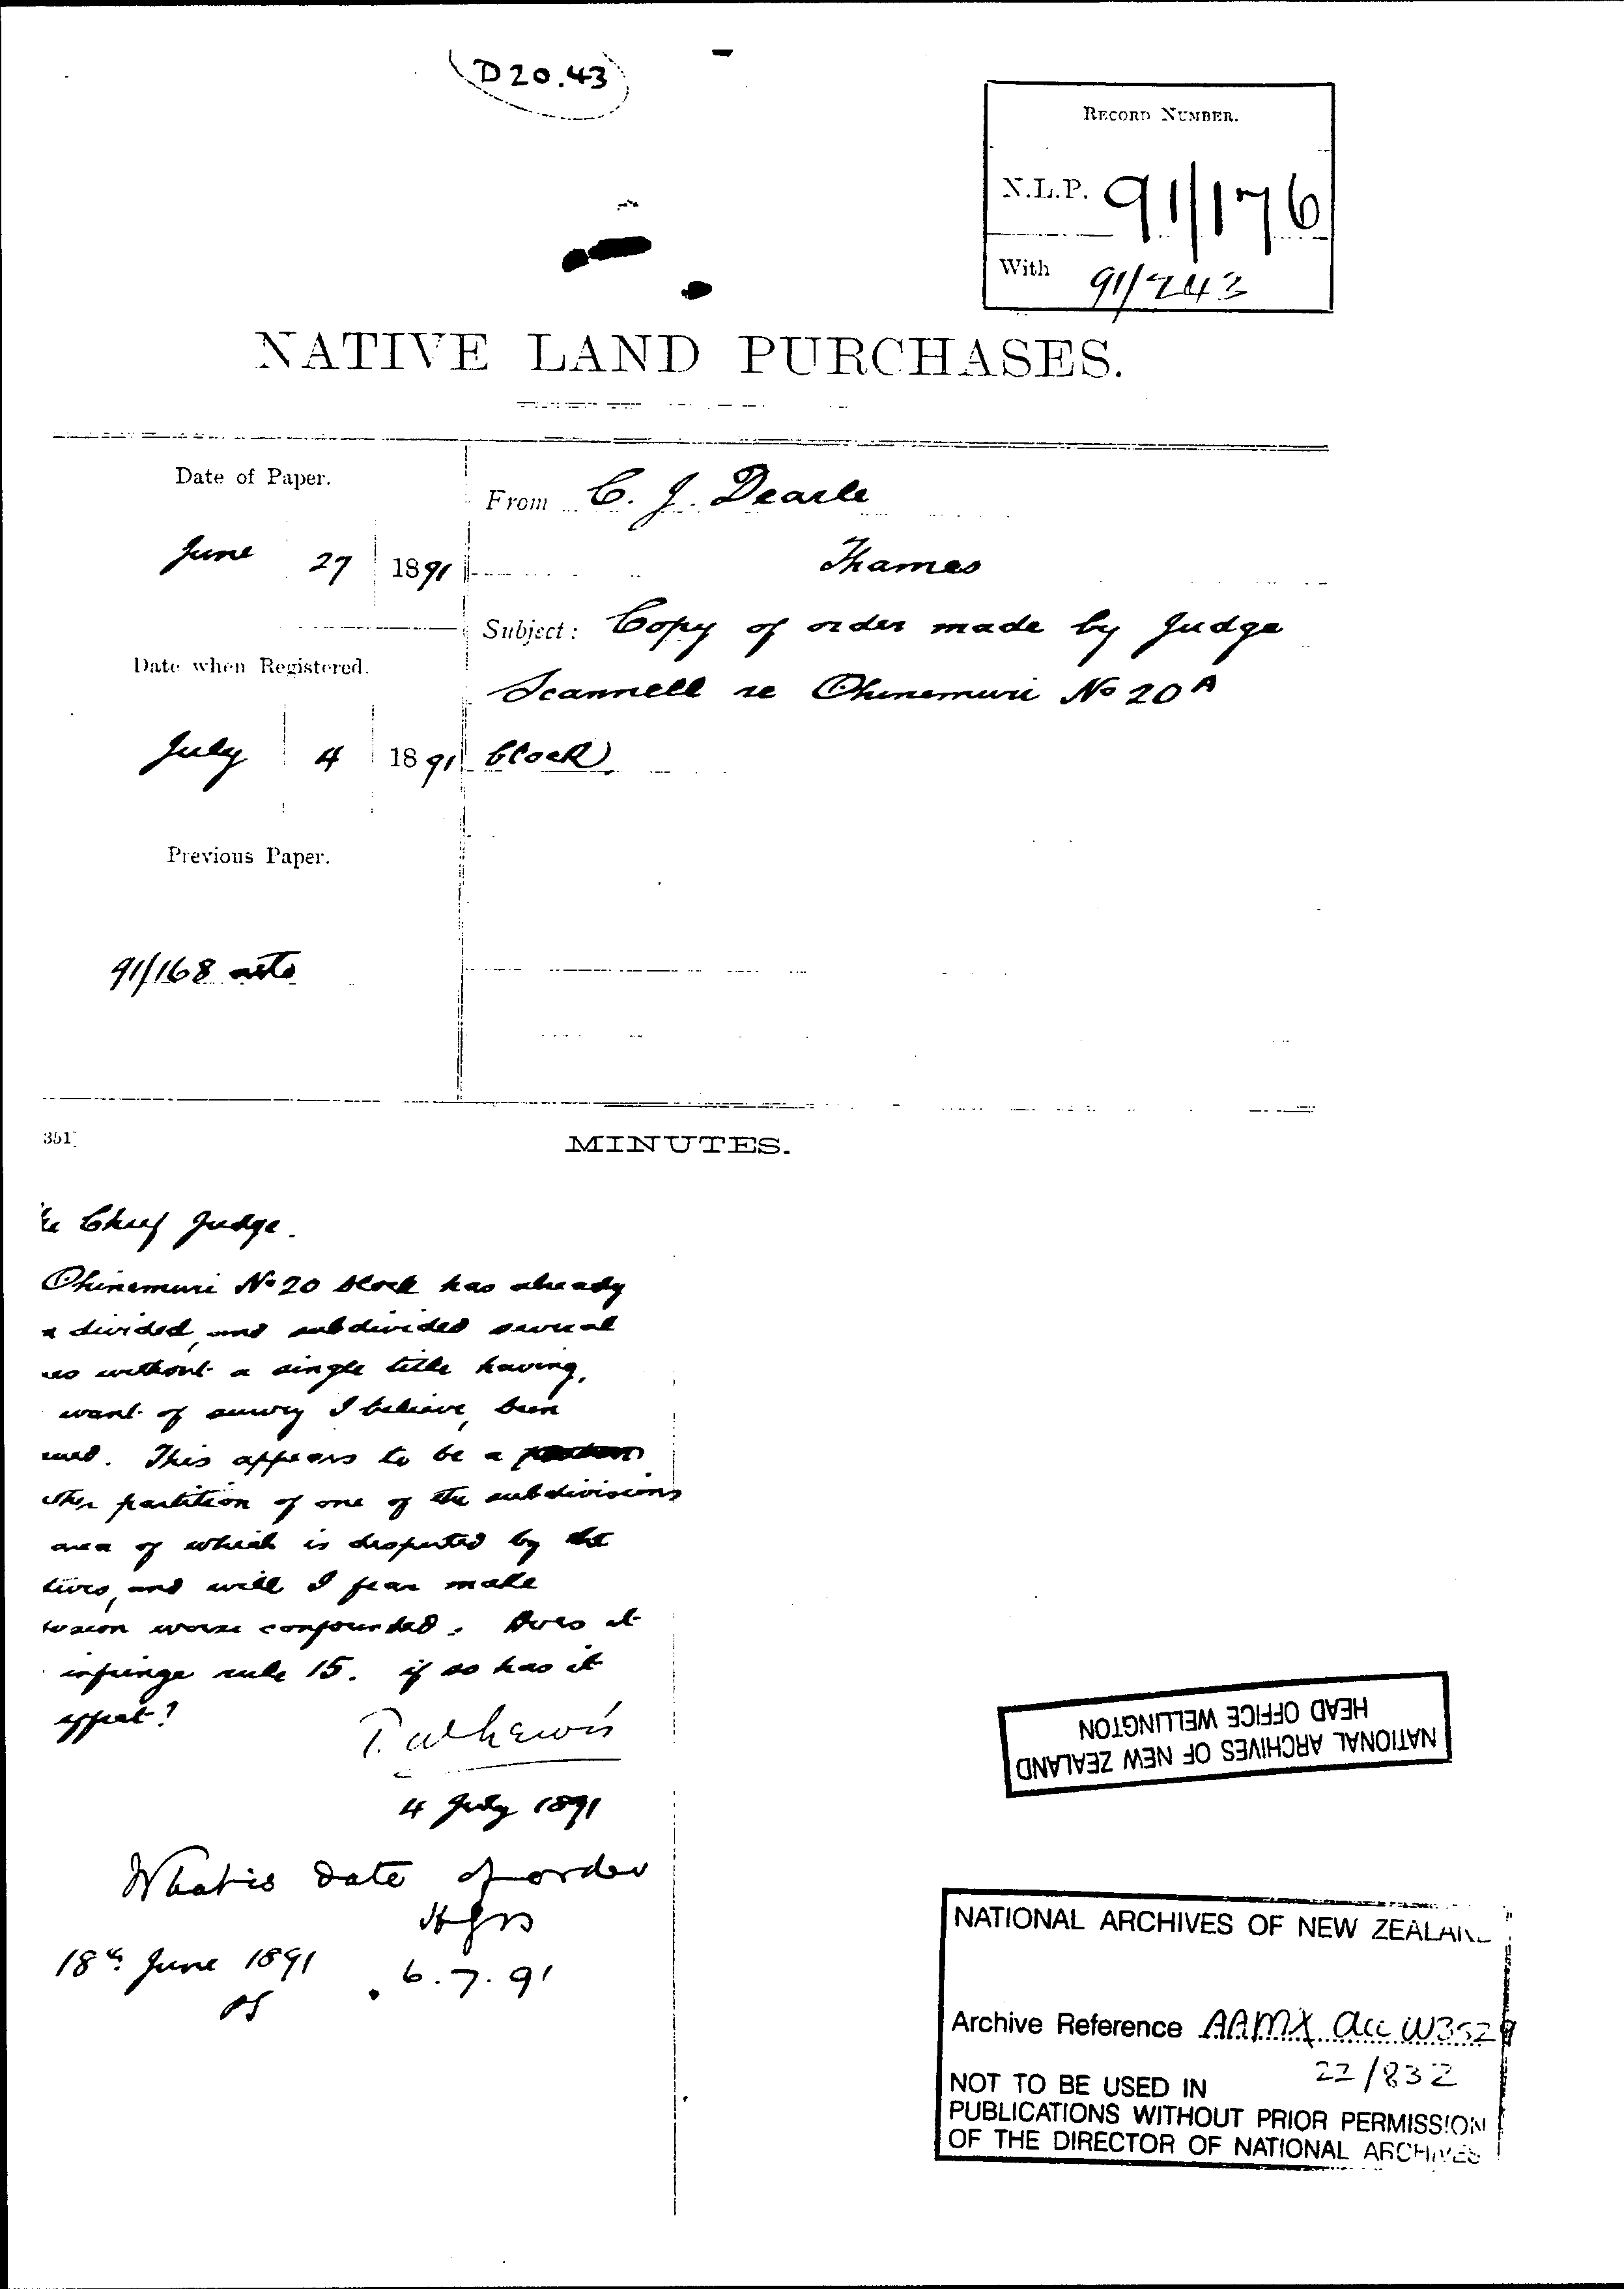 D 20.43
RECORD NUMBER.
N.L.P. 91/176
With 91/243
NATIVE LAND PURCHASES.
Date of Paper.
June 27 1891
Date when Registered.
July 4 1891
Previous Paper.
91/168
From C. J. Dearle
Thames
Subject: Copy of order made by Judge
Scannell re Ohinemuri No 20A
block
351]
MINUTES.
Chief Judge.
Ohinemuri No 20 block has already
divided, and subdivided several
es without a single title having,
want of survey I believe, been
ued. This appears to be a
ther partition of one of the subdivisions
area of which is disputed by the
tives, and will I fear make
fusion worse confounded. Does it
infringe rule 15. if so has it
effect?
T. W. Lewis
4 July 1891
What is date of order
HGS
6.7.91
18th June 1891
NATIONAL ARCHIVES OF NEW ZEALAND
HEAD OFFICE WELLINGTON
NATIONAL ARCHIVES OF NEW ZEALAND
Archive Reference AAMX acc W3529
22/832
NOT TO BE USED IN
PUBLICATIONS WITHOUT PRIOR PERMISSION
OF THE DIRECTOR OF NATIONAL ARCHIVES